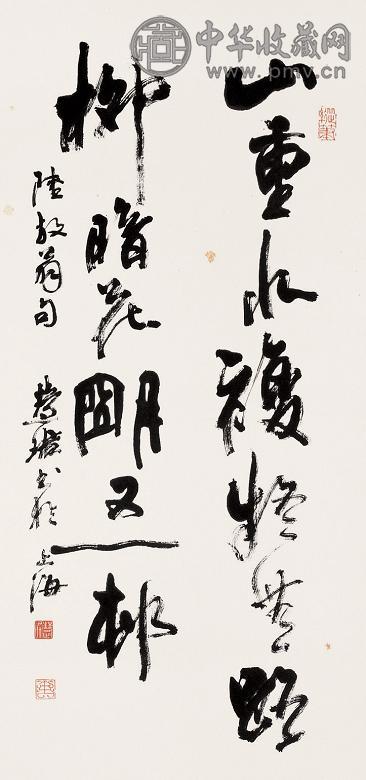 中华收藏网
www.pmv.cn
山重水複疑無路
柳暗花朙又一邨
陸放翁句
書於上海